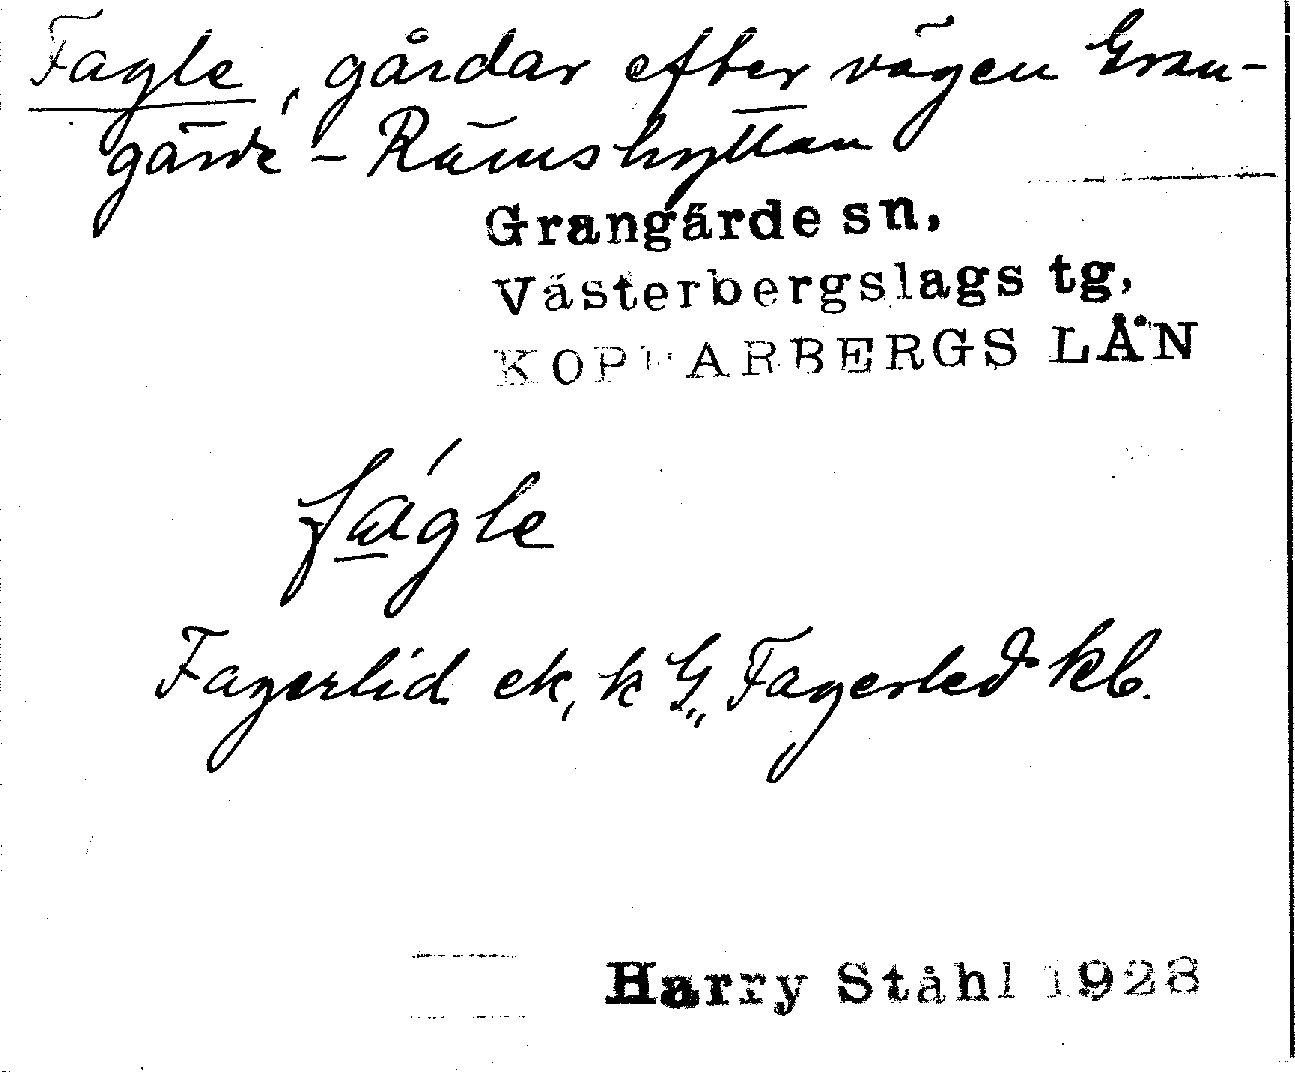 Fagle, gårdar efter vägen Gran-
gärde - Rämshyttan
Grangärde sn,
Västerbergslags tg,
KOPPARBERGS LÄN
fágle
Fagerlid ek, k G,, Fagerled kb.
Harry Ståhl 1928